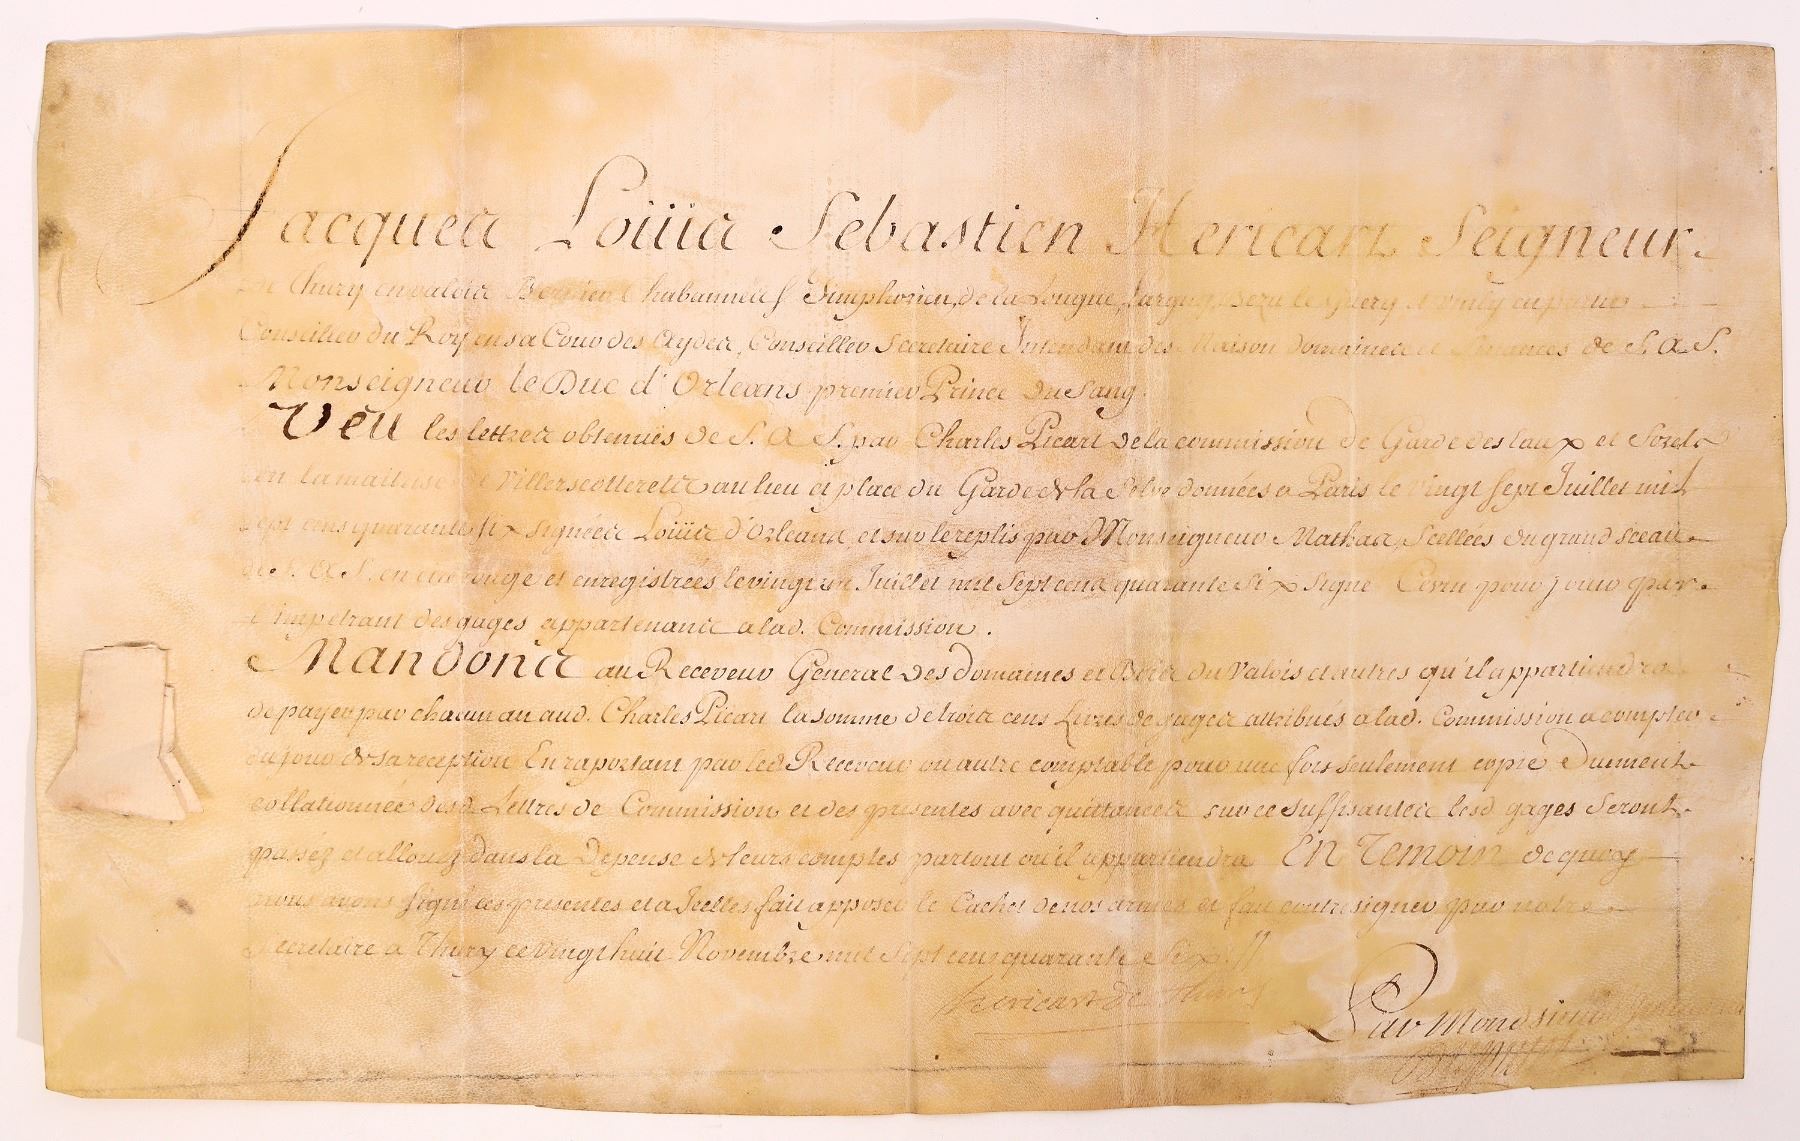 Jacques Loüis Sebastien Hericart Seigneur
De Thury en valois Chabannes St Simphorien, de la Longue,
Conseiller du Roy en sa Cour des Aydes, Conseiller Secretaire Intendant des Maison Domaines et Finances de S. A. S.
Monseigneur le Duc d'Orleans premier Prince Du Sang.
Veu les lettres obtenuës de S. A. S. par Charles Picart de la commission de Garde des Eaux et Forets
en la maitrise de Villerscotterets au lieu et place du Garde de la données a Paris le vingt sept Juillet mil
sept cens quarante six signées Loüis d'Orleans, et sur le replis par Monseigneur Mathas, Scellées du grand Sceau
de S. A. S. en cire rouge et enregistrées le vingt Juillet mil sept cens quarante six signé pour jouir par
l'impetrant des gages appartenans a lad. Commission.
Mandons au Receveur General des Domaines et Bois du Valois et autres qu'il appartiendra
de payer par chacun an aud. Charles Picart la somme de trois cens Livres de gages attribués a lad. Commission a compter
du jour de sa reception En raportant par led. Receveur ou autre comptable pour une fois seulement copie Duement
collationnée desd. Lettres de Commission et des presentes avec quittances sur ce suffisantes lesd gages seront
passéz et allouéz dans la Depense de leurs comptes partout ou il appartiendra En Temoin de quoy
nous avons signé ces presentes et a Icelles fait apposer le Cachet de nos armes et fait contresigner par notre
Secretaire a Thury ce vingt huit Novembre mil sept cens quarante six //
hericart de Thury
Par Mond sieur